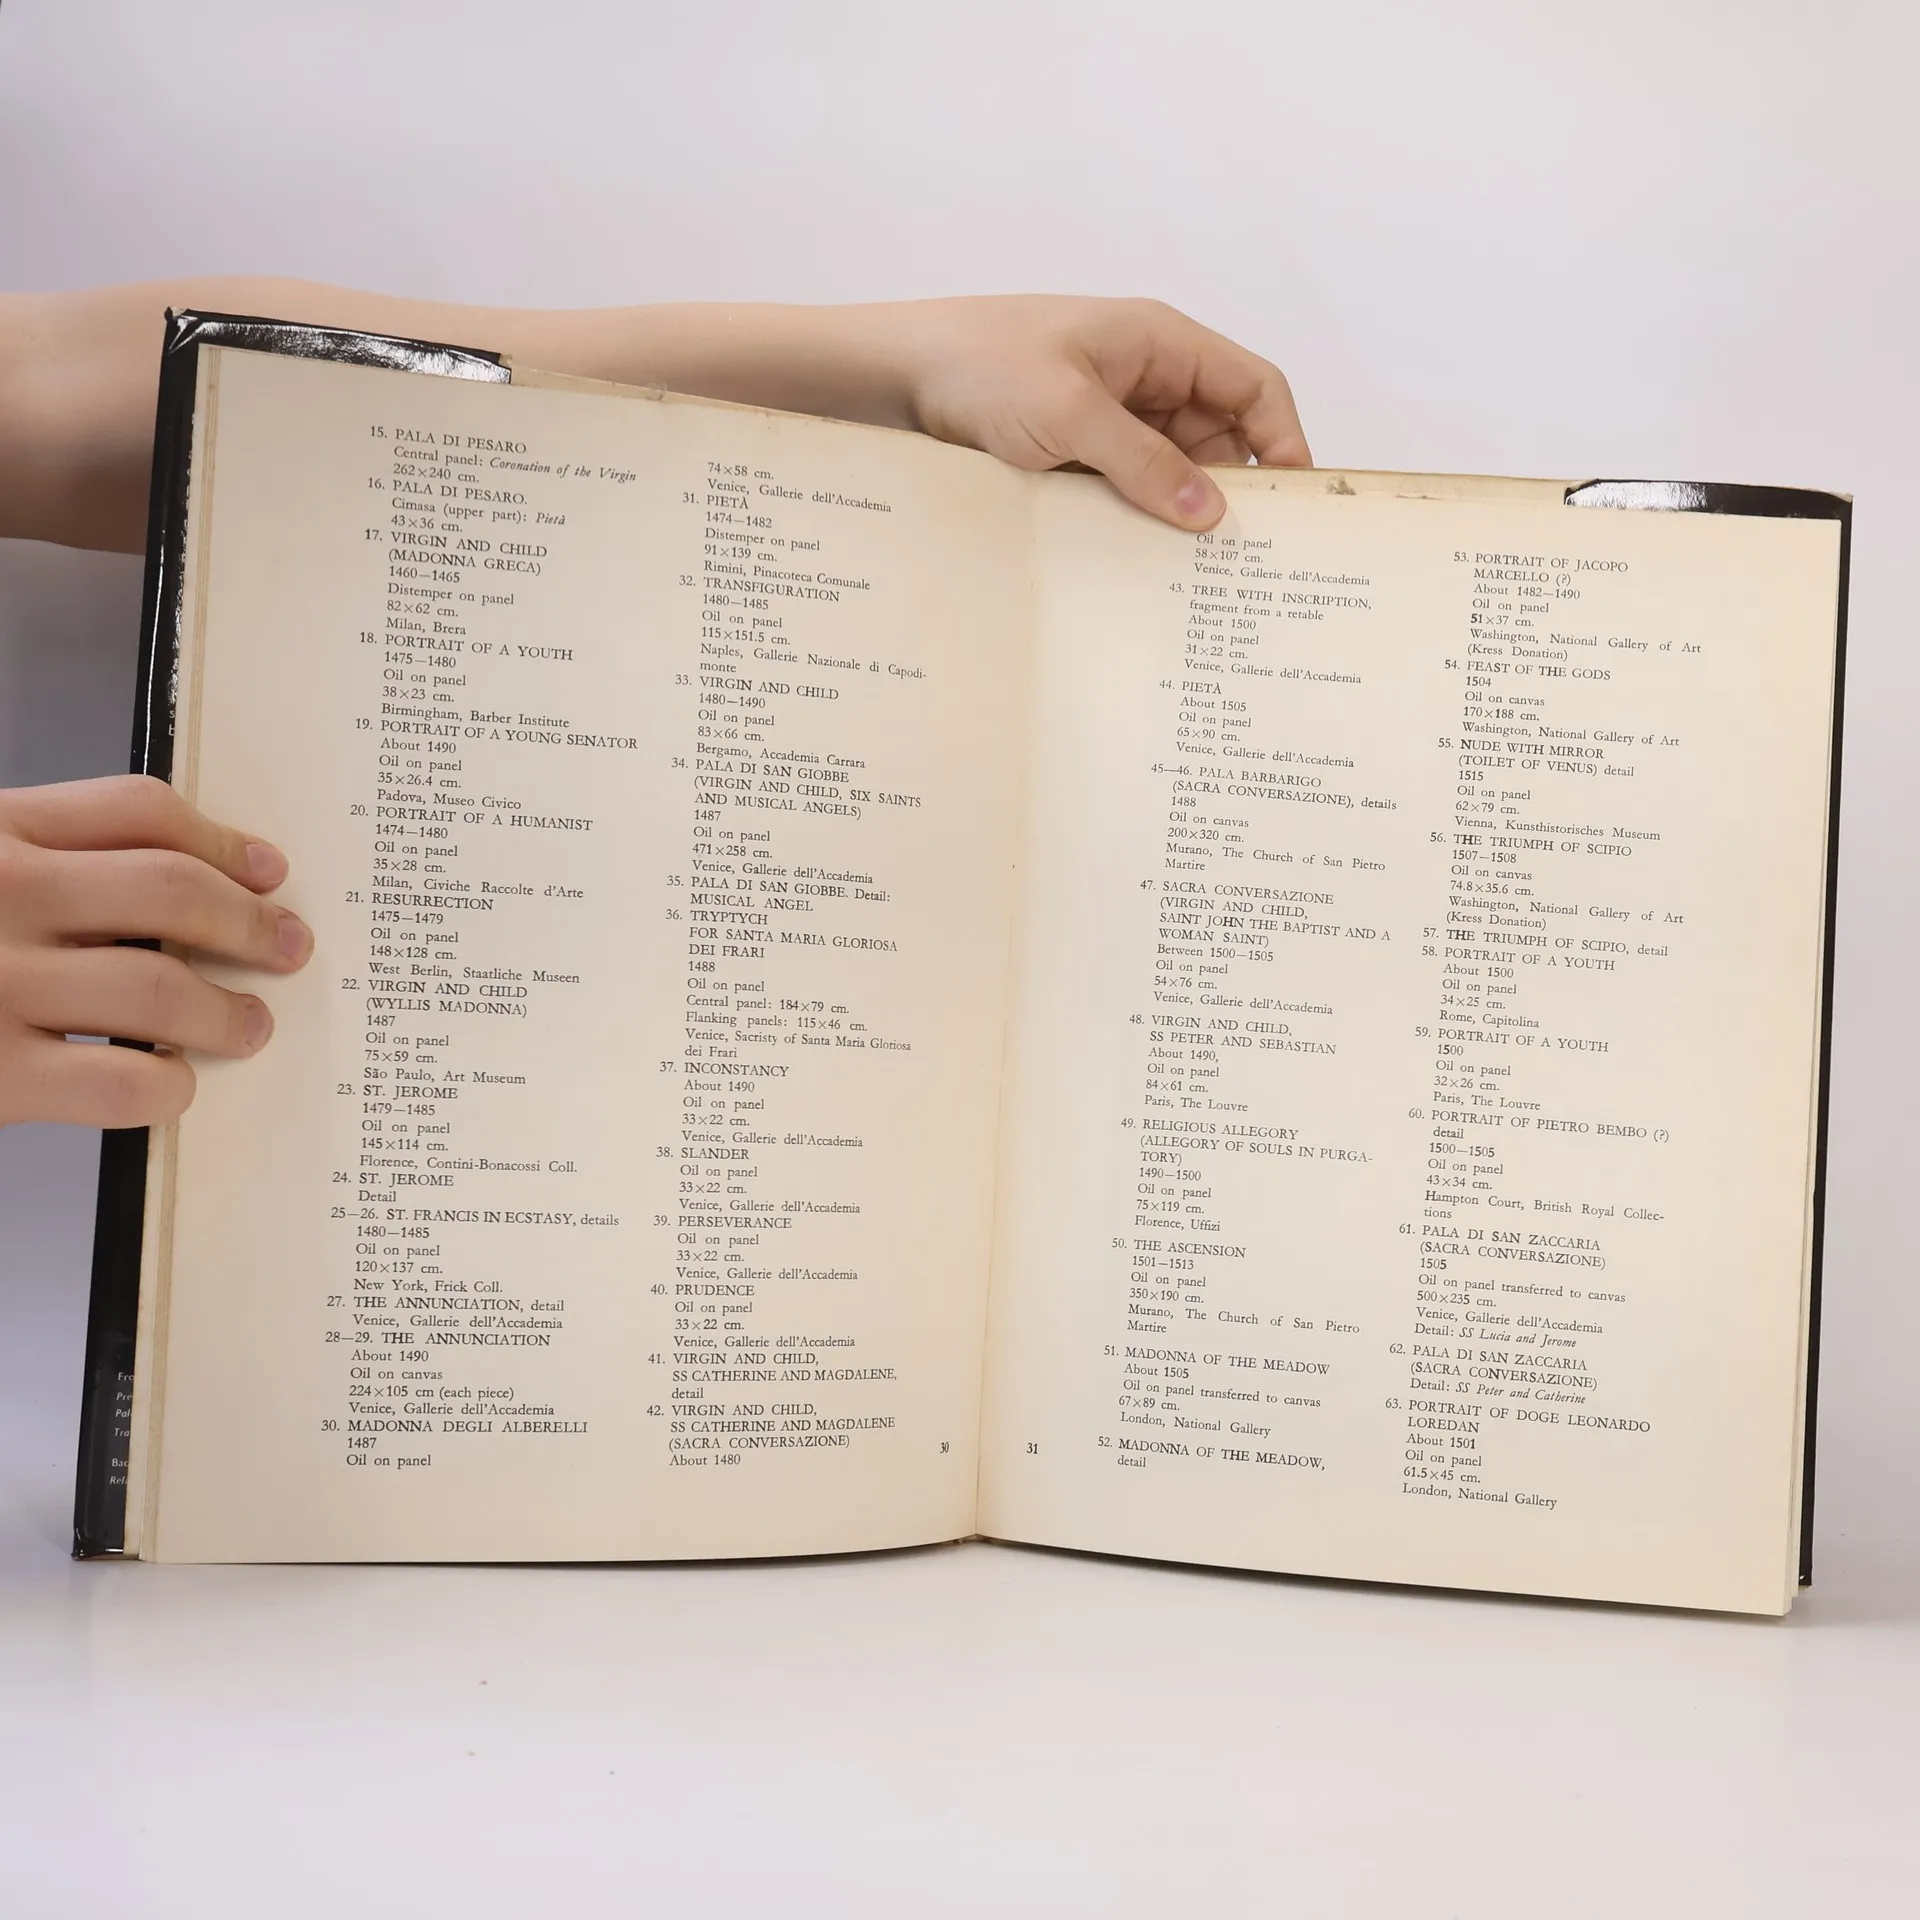 15. PALA DI PESARO
Central panel: Coronation of the Virgin
262×240 cm.
16. PALA DI PESARO.
Cimasa (upper part): Pietà
43×36 cm.
17. VIRGIN AND CHILD
(MADONNA GRECA)
1460—1465
Distemper on panel
82×62 cm.
Milan, Brera
18. PORTRAIT OF A YOUTH
1475—1480
Oil on panel
38×23 cm.
Birmingham, Barber Institute
19. PORTRAIT OF A YOUNG SENATOR
About 1490
Oil on panel
35×26.4 cm.
Padova, Museo Civico
20. PORTRAIT OF A HUMANIST
1474—1480
Oil on panel
35×28 cm.
Milan, Civiche Raccolte d'Arte
21. RESURRECTION
1475—1479
Oil on panel
148×128 cm.
West Berlin, Staatliche Museen
22. VIRGIN AND CHILD
(WYLLIS MADONNA)
1487
Oil on panel
75×59 cm.
São Paulo, Art Museum
23. ST. JEROME
1479—1485
Oil on panel
145×114 cm.
Florence, Contini-Bonacossi Coll.
24. ST. JEROME
Detail
25—26. ST. FRANCIS IN ECSTASY, details
1480—1485
Oil on panel
120×137 cm.
New York, Frick Coll.
27. THE ANNUNCIATION, detail
Venice, Gallerie dell'Accademia
28—29. THE ANNUNCIATION
About 1490
Oil on canvas
224×105 cm (each piece)
Venice, Gallerie dell'Accademia
30. MADONNA DEGLI ALBERELLI
1487
Oil on panel
74×58 cm.
Venice, Gallerie dell'Accademia
31. PIETÀ
1474—1482
Distemper on panel
91×139 cm.
Rimini, Pinacoteca Comunale
32. TRANSFIGURATION
1480—1485
Oil on panel
115×151.5 cm.
Naples, Gallerie Nazionale di Capodi-
monte
33. VIRGIN AND CHILD
1480—1490
Oil on panel
83×66 cm.
Bergamo, Accademia Carrara
34. PALA DI SAN GIOBBE
(VIRGIN AND CHILD, SIX SAINTS
AND MUSICAL ANGELS)
1487
Oil on panel
471×258 cm.
Venice, Gallerie dell'Accademia
35. PALA DI SAN GIOBBE. Detail:
MUSICAL ANGEL
36. TRYPTYCH
FOR SANTA MARIA GLORIOSA
DEI FRARI
1488
Oil on panel
Central panel: 184×79 cm.
Flanking panels: 115×46 cm.
Venice, Sacristy of Santa Maria Gloriosa
dei Frari
37. INCONSTANCY
About 1490
Oil on panel
33×22 cm.
Venice, Gallerie dell'Accademia
38. SLANDER
Oil on panel
33×22 cm.
Venice, Gallerie dell'Accademia
39. PERSEVERANCE
Oil on panel
33×22 cm.
Venice, Gallerie dell'Accademia
40. PRUDENCE
Oil on panel
33×22 cm.
Venice, Gallerie dell'Accademia
41. VIRGIN AND CHILD,
SS CATHERINE AND MAGDALENE,
detail
42. VIRGIN AND CHILD,
SS CATHERINE AND MAGDALENE
(SACRA CONVERSAZIONE)
About 1480
30
31
Oil on panel
58×107 cm.
Venice, Gallerie dell'Accademia
43. TREE WITH INSCRIPTION,
fragment from a retable
About 1500
Oil on panel
31×22 cm.
Venice, Gallerie dell'Accademia
44. PIETÀ
About 1505
Oil on panel
65×90 cm.
Venice, Gallerie dell'Accademia
45—46. PALA BARBARIGO
(SACRA CONVERSAZIONE), details
1488
Oil on canvas
200×320 cm.
Murano, The Church of San Pietro
Martire
47. SACRA CONVERSAZIONE
(VIRGIN AND CHILD,
SAINT JOHN THE BAPTIST AND A
WOMAN SAINT)
Between 1500—1505
Oil on panel
54×76 cm.
Venice, Gallerie dell'Accademia
48. VIRGIN AND CHILD,
SS PETER AND SEBASTIAN
About 1490,
Oil on panel
84×61 cm.
Paris, The Louvre
49. RELIGIOUS ALLEGORY
(ALLEGORY OF SOULS IN PURGA-
TORY)
1490—1500
Oil on panel
75×119 cm.
Florence, Uffizi
50. THE ASCENSION
1501—1513
Oil on panel
350×190 cm.
Murano, The Church of San Pietro
Martire
51. MADONNA OF THE MEADOW
About 1505
Oil on panel transferred to canvas
67×89 cm.
London, National Gallery
52. MADONNA OF THE MEADOW,
detail
53. PORTRAIT OF JACOPO
MARCELLO (?)
About 1482—1490
Oil on panel
51×37 cm.
Washington, National Gallery of Art
(Kress Donation)
54. FEAST OF THE GODS
1504
Oil on canvas
170×188 cm.
Washington, National Gallery of Art
55. NUDE WITH MIRROR
(TOILET OF VENUS) detail
1515
Oil on panel
62×79 cm.
Vienna, Kunsthistorisches Museum
56. THE TRIUMPH OF SCIPIO
1507—1508
Oil on canvas
74.8×35.6 cm.
Washington, National Gallery of Art
(Kress Donation)
57. THE TRIUMPH OF SCIPIO, detail
58. PORTRAIT OF A YOUTH
About 1500
Oil on panel
34×25 cm.
Rome, Capitolina
59. PORTRAIT OF A YOUTH
1500
Oil on panel
32×26 cm.
Paris, The Louvre
60. PORTRAIT OF PIETRO BEMBO (?)
detail
1500—1505
Oil on panel
43×34 cm.
Hampton Court, British Royal Collec-
tions
61. PALA DI SAN ZACCARIA
(SACRA CONVERSAZIONE)
1505
Oil on panel transferred to canvas
500×235 cm.
Venice, Gallerie dell'Accademia
Detail: SS Lucia and Jerome
62. PALA DI SAN ZACCARIA
(SACRA CONVERSAZIONE)
Detail: SS Peter and Catherine
63. PORTRAIT OF DOGE LEONARDO
LOREDAN
About 1501
Oil on panel
61.5×45 cm.
London, National Gallery